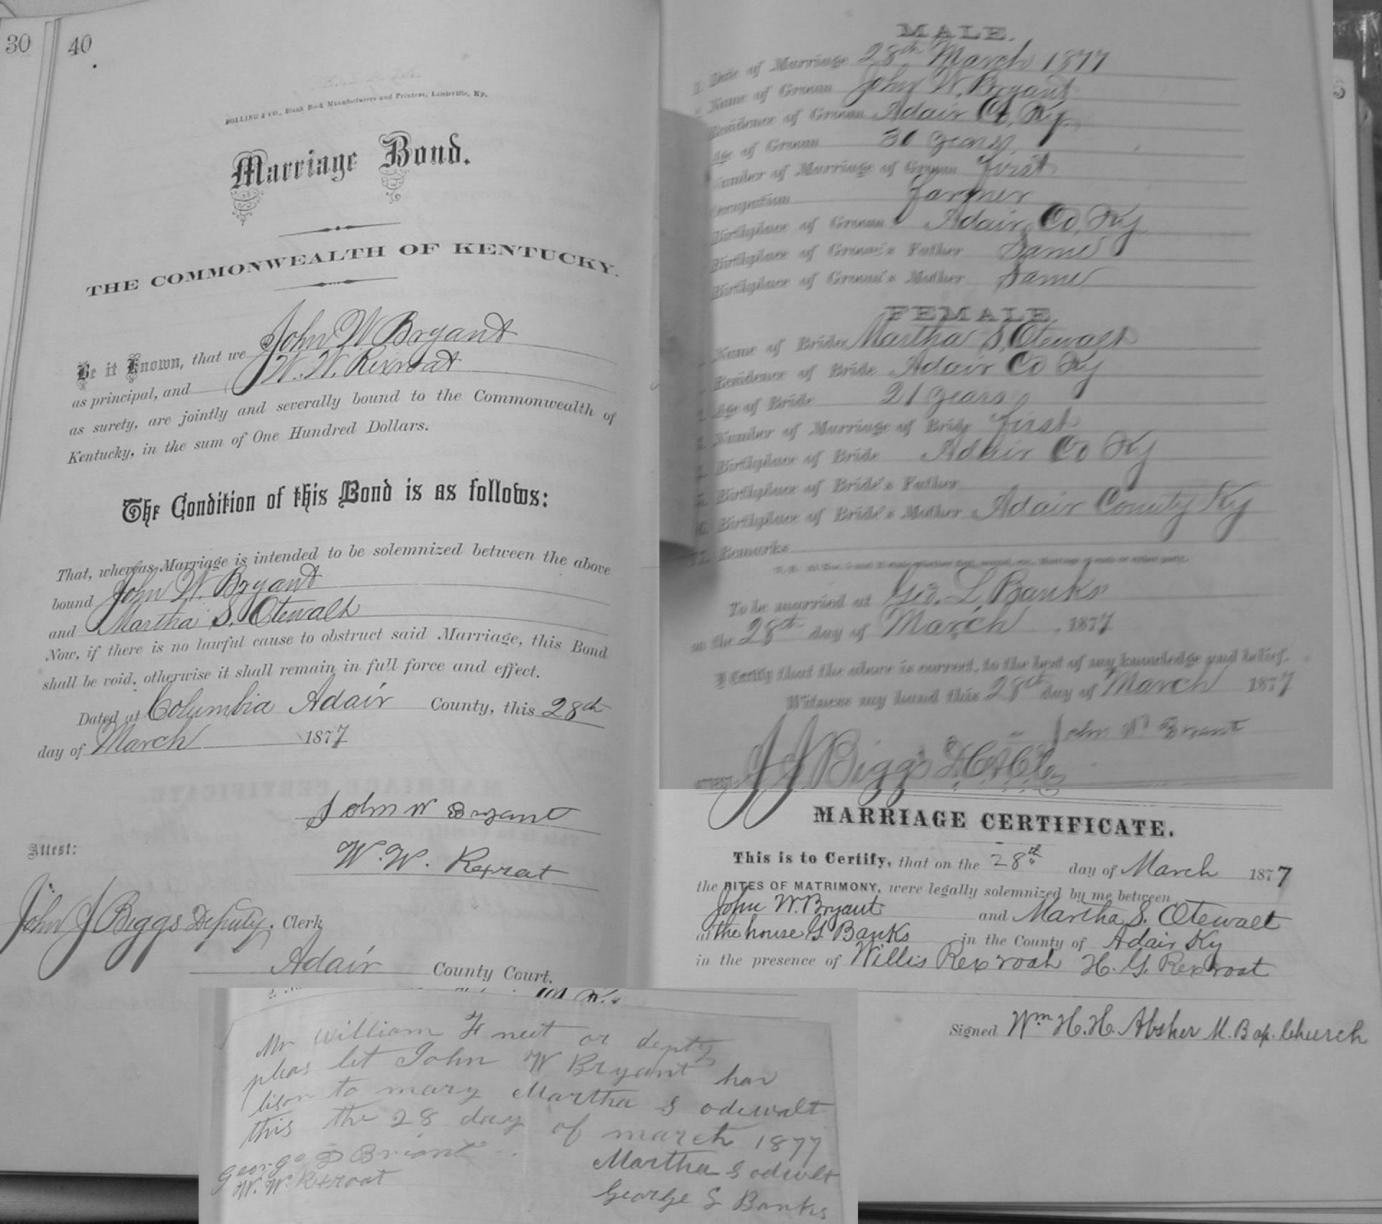 30
40
BOLLING & CO., Blank Book Manufacturers and Printers, Louisville, Ky.
Marriage Bond.
THE COMMONWEALTH OF KENTUCKY.
Be it Known, that we John W Bryant
as principal, and W. W. Rexroat
as surety, are jointly and severally bound to the Commonwealth of
Kentucky, in the sum of One Hundred Dollars.
The Condition of this Bond is as follows:
That, whereas Marriage is intended to be solemnized between the above
bound John W. Bryant
and Martha S. Otewalt
Now, if there is no lawful cause to obstruct said Marriage, this Bond
shall be void, otherwise it shall remain in full force and effect.
Dated at Columbia Adair County, this 28th
day of March 1877
John W Bryant
W. W. Rexroat
Attest:
John J Biggs Deputy, Clerk
Adair County Court.
MALE.
1. Date of Marriage 28th March 1877
Name of Groom John W. Bryant
Residence of Groom Adair Co, Ky,
Age of Groom 30 years
Number of Marriage of Groom first
Occupation Farmer
Birthplace of Groom Adair Co Ky
Birthplace of Groom's Father Same
Birthplace of Groom's Mother Same
FEMALE.
Name of Bride Martha S, Otewalt
Residence of Bride Adair Co Ky
Age of Bride 21 years
Number of Marriage of Bride first
Birthplace of Bride Adair Co Ky
Birthplace of Bride's Father
Birthplace of Bride's Mother Adair County Ky
Remarks
To be married at Geo. L Banks
on the 28th day of March, 1877
I Certify that the above is correct, to the best of my knowledge and belief.
Witness my hand this 28th day of March 1877
John W Bryant
J J Biggs
MARRIAGE CERTIFICATE.
This is to Certify, that on the 28th day of March 1877
the RITES OF MATRIMONY, were legally solemnized by me between
John W. Bryant and Martha S. Otewalt
at the house G Banks in the County of Adair Ky
in the presence of Willis Rexroat H. G. Rexroat
Signed Wm H. H. Absher M. Bap. Church
Mr William F neet or depty
pleas let John W Bryant hav
lison to mary Martha S odewalt
this the 28 day of march 1877
George D Briant Martha S odwelt
W. W. Rexroat George S Banks